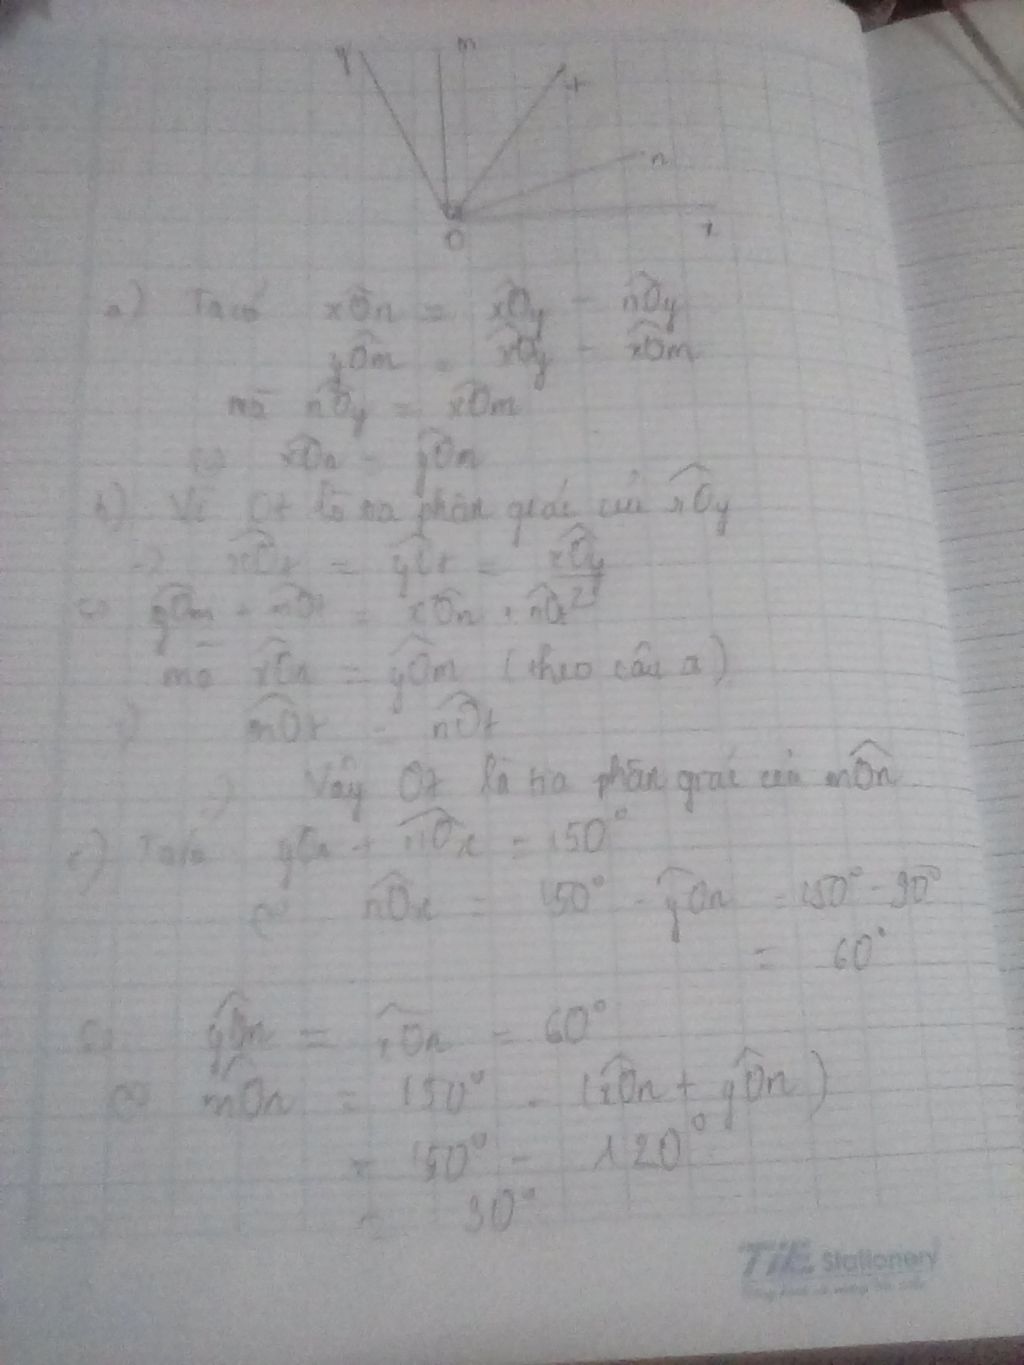 y m t n
O x
a) Ta có xOn = xOy - nOy
yOm = xOy - xOm
mà nOy = xOm
=> xOn = yOm
b) Vì Ot là tia phân giác của xOy
=> xOt = yOt = xOy/2
=> yOm + nOt = xOn + nOt
mà xOn = yOm (theo câu a)
=> mOt = nOt
=> Vậy Ot là tia phân giác của mOn
c) Ta có yOn + nOx = 150°
=> nOx = 150° - yOn = 150° - 90°
= 60°
=> yOn = xOn = 60°
=> mOn = 150° - (xOn + yOn)
= 150° - 120°
= 30°
TiE Stationery